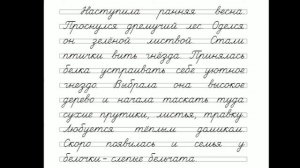 Наступила ранняя весна.
Проснулся дремучий лес Оделся
он зелёной листвой Стали
птички вить гнёзда Принялась
белка устраивать себе уютное
гнездо Выбрала она высокое
дерево и начала таскать туда
сухие прутики, листья, травку.
Любуется тёплым домиком
Скоро появилась и семья у
белочки - слепые бельчата.